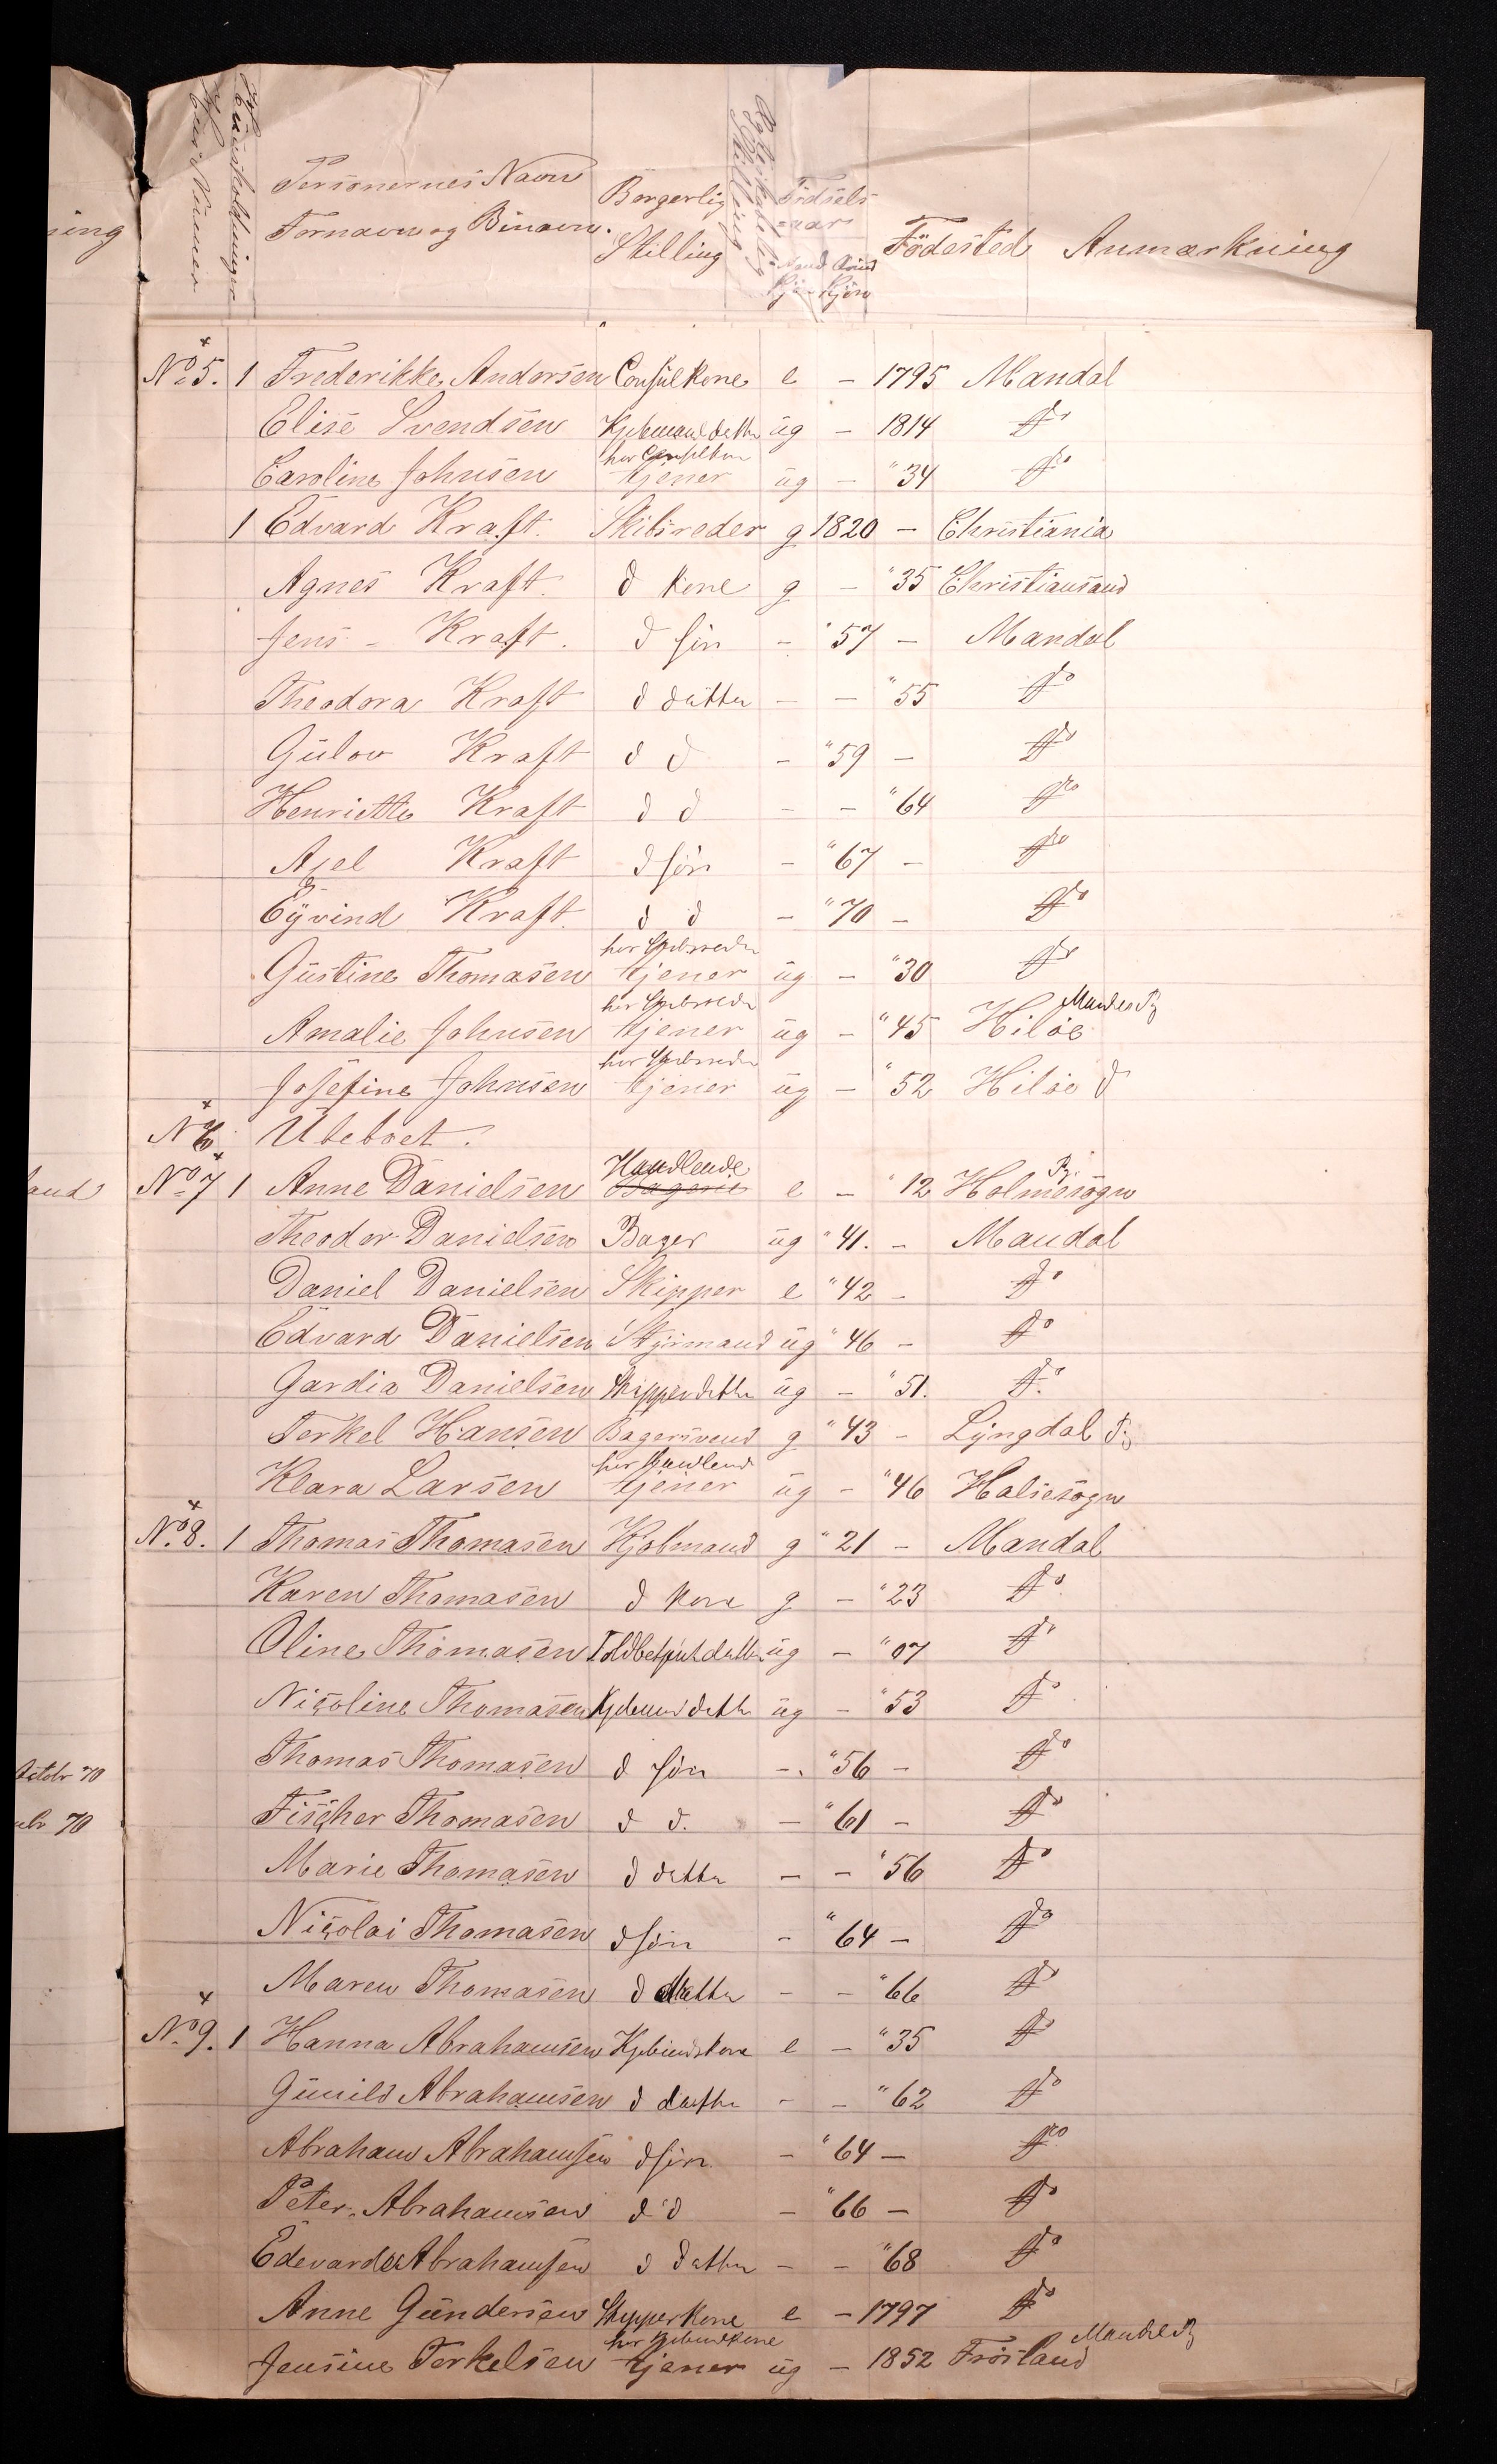 Huusholdninger
Personernes Navn
Fornavn og Binavn.
Borgerlig
Stilling
Ægteskabelig Stilling
Födsels
aar
Mand Qvind
Kjön Kjön
Födested
Anmærkning
No 5. 1 Frederikke Andorsen Consulkone e – 1795 Mandal
Elise Svendsen Kjöbmanddatter ug – 1814 Do
Caroline Johnsen tjener ug – " 34 Do
1 Edvard Kraft. Skibsreder g 1820 – Christiania
Agnes Kraft. d kone g – " 35 Christiansand
Jens – Kraft. d sön – " 57 – Mandal
Theodora Kraft d datter – – " 55 Do
Gulov Kraft d d – " 59 – Do
Henriette Kraft d d – – " 64 Do
Axel Kraft d sön – " 67 – Do
Eÿvind Kraft. d d – " 70 – Do
Gustine Thomasen hos Skibsreder tjener ug – " 30 Do
Amalie Johnsen hos Skibsreder tjener ug – " 45 Hiløe
Josefine Johnsen hos Skibsreder tjener ug – " 52 Hiløe d
No 6. Ubeboet.
No 7 1 Anne Danielsen Handlende e – " 12 Holmesogn
Theodor Danielsen Bager ug " 41. – Mandal
Daniel Danielsen Skipper e " 42 – Do
Edvard Danielsen Styrmand ug " 46 – Do
Gardia Danielsen Skipperdatter ug – " 51. Do
Terkel Hansen Bagersvend g " 43 – Lÿngdal
Klara Larsen tjener ug – " 46 Halsesogn
No 8. 1 Thomas Thomasen Kjöbmand g " 21 – Mandal
Karen Thomasen d kone g – " 23 Do
Oline Thomasen ug – " 07 Do
Nicoline Thomasen Kjöbmanddatter ug – " 53 Do
Thomas Thomasen d sön – " 56 – Do
Fischer Thomasen d d. – " 61 – Do
Marie Thomasen d datter – – " 56 Do
Nicolai Thomasen d sön – " 64 – Do
Maren Thomasen d datter – – " 66 Do
No 9. 1 Hanna Abrahamsen Kjöbmandskone e – " 35 Do
Gunild Abrahamsen d datter – – " 62 Do
Abraham Abrahamsen d sön – " 64 – Do
Peter. Abrahamsen d d – " 66 – Do
Edevarda Abrahamsen d datter – – " 68 Do
Anne Gundersen Skipperkone e – 1797 Do
Jensine Terkelsen tjener ug – 1852 Fröiland